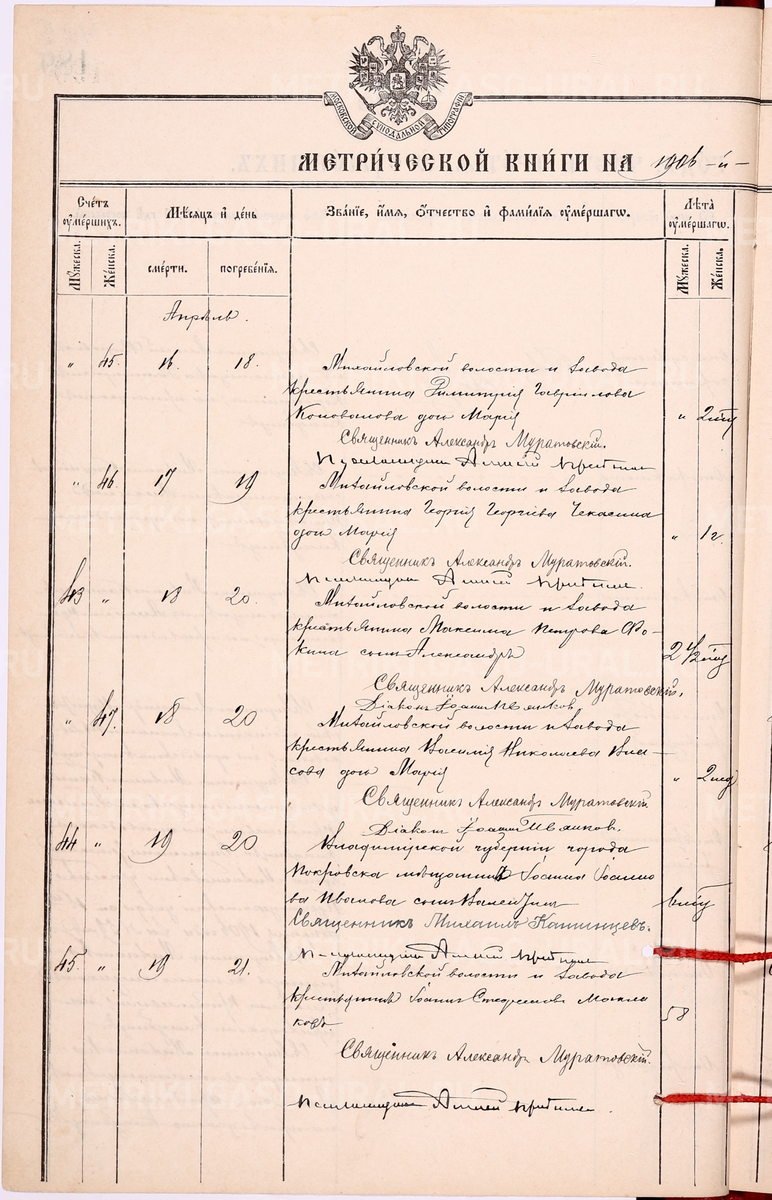 МОСКОВСКОЙ СѴНОДАЛЬНОЙ ТИПОГРАФІИ
МЕТРИ́ЧЕСКОЙ КНИ́ГИ НА 1906-й-
Сче́тъ ᲂу҆ме́ршихъ.
Мѣ́сяцъ и҆ де́нь
Зва́нїе, и҆́мѧ, ѻ҆́тчество и҆ фами́лїѧ ᲂу҆ме́ршагѡ.
Лѣ́та ᲂу҆ме́ршагѡ.
Мꙋ́жеска.
Же́нска.
сме́рти.
погребе́нїѧ.
Мꙋ́жеска.
Же́нска.
Апрѣль.
" 45. 16. 18. Михайловской волости и завода
крестьянина Димитрія Гаврилова
Коновалова дочь Марія " 2
Священникъ Александръ Муратовскій.
Псаломщикъ
" 46 17 19 Михайловской волости и завода
крестьянина Георгія Георгіева Чекасина
дочь Марія " 1 г.
Священникъ Александръ Муратовскій.
Псаломщикъ
43 " 18 20. Михайловской волости и завода
крестьянина Максима Петрова Фо-
кина сынъ Александръ 2 1/2
Священникъ Александръ Муратовскій.
Діаконъ Іоаннъ
" 47. 18 20 Михайловской волости и завода
крестьянина Василія Николаева Вла-
сова дочь Марія " 2 нед
Священникъ Александръ Муратовскій
Діаконъ Іоаннъ
44 " 19 20 Владимірской губерніи города
Покровска мѣщанина Іоанна Іоанно
ва Иванова сынъ
Священникъ Михаилъ Кашинцевъ.
Псаломщикъ
45. " 19 21. Михайловской волости и завода
крестьянинъ Іоаннъ Стефановъ
ковъ 58
Священникъ Александръ Муратовскій.
Псаломщикъ